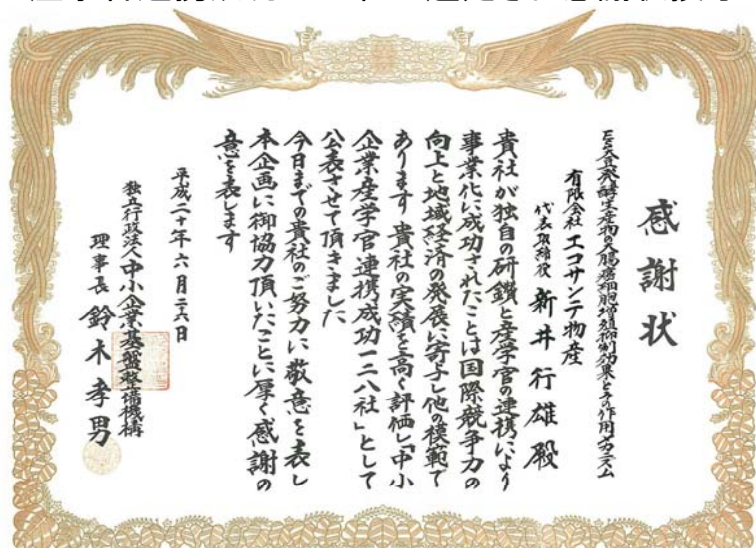 感謝状
大腸癌細胞増殖抑制効果とその作用メカニズム
有限会社 エコサンテ物産
代表取締役 新井行雄殿
貴社が独自の研鑽と産学官の連携により
事業化に成功されたことは国際競争力の
向上と地域経済の発展に寄与し他の模範で
あります 貴社の実績を高く評価し「中小
企業産学官連携成功一二八社」として
公表させて頂きました
今日までの貴社のご努力に敬意を表し
本企画に御協力頂いたことに厚く感謝の
意を表します
平成二十年六月二六日
独立行政法人中小企業基盤整備機構
理事長 鈴木孝男